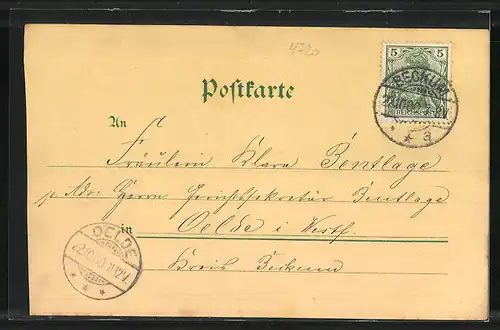 4720
5 5
BECKUM
a
Postkarte
An
Fräulein Klara Bentlage
p. Adr: Herrn Gerichtssekretär Bentlage
in Oelde i Westf.
Kreis Beckum
OELDE